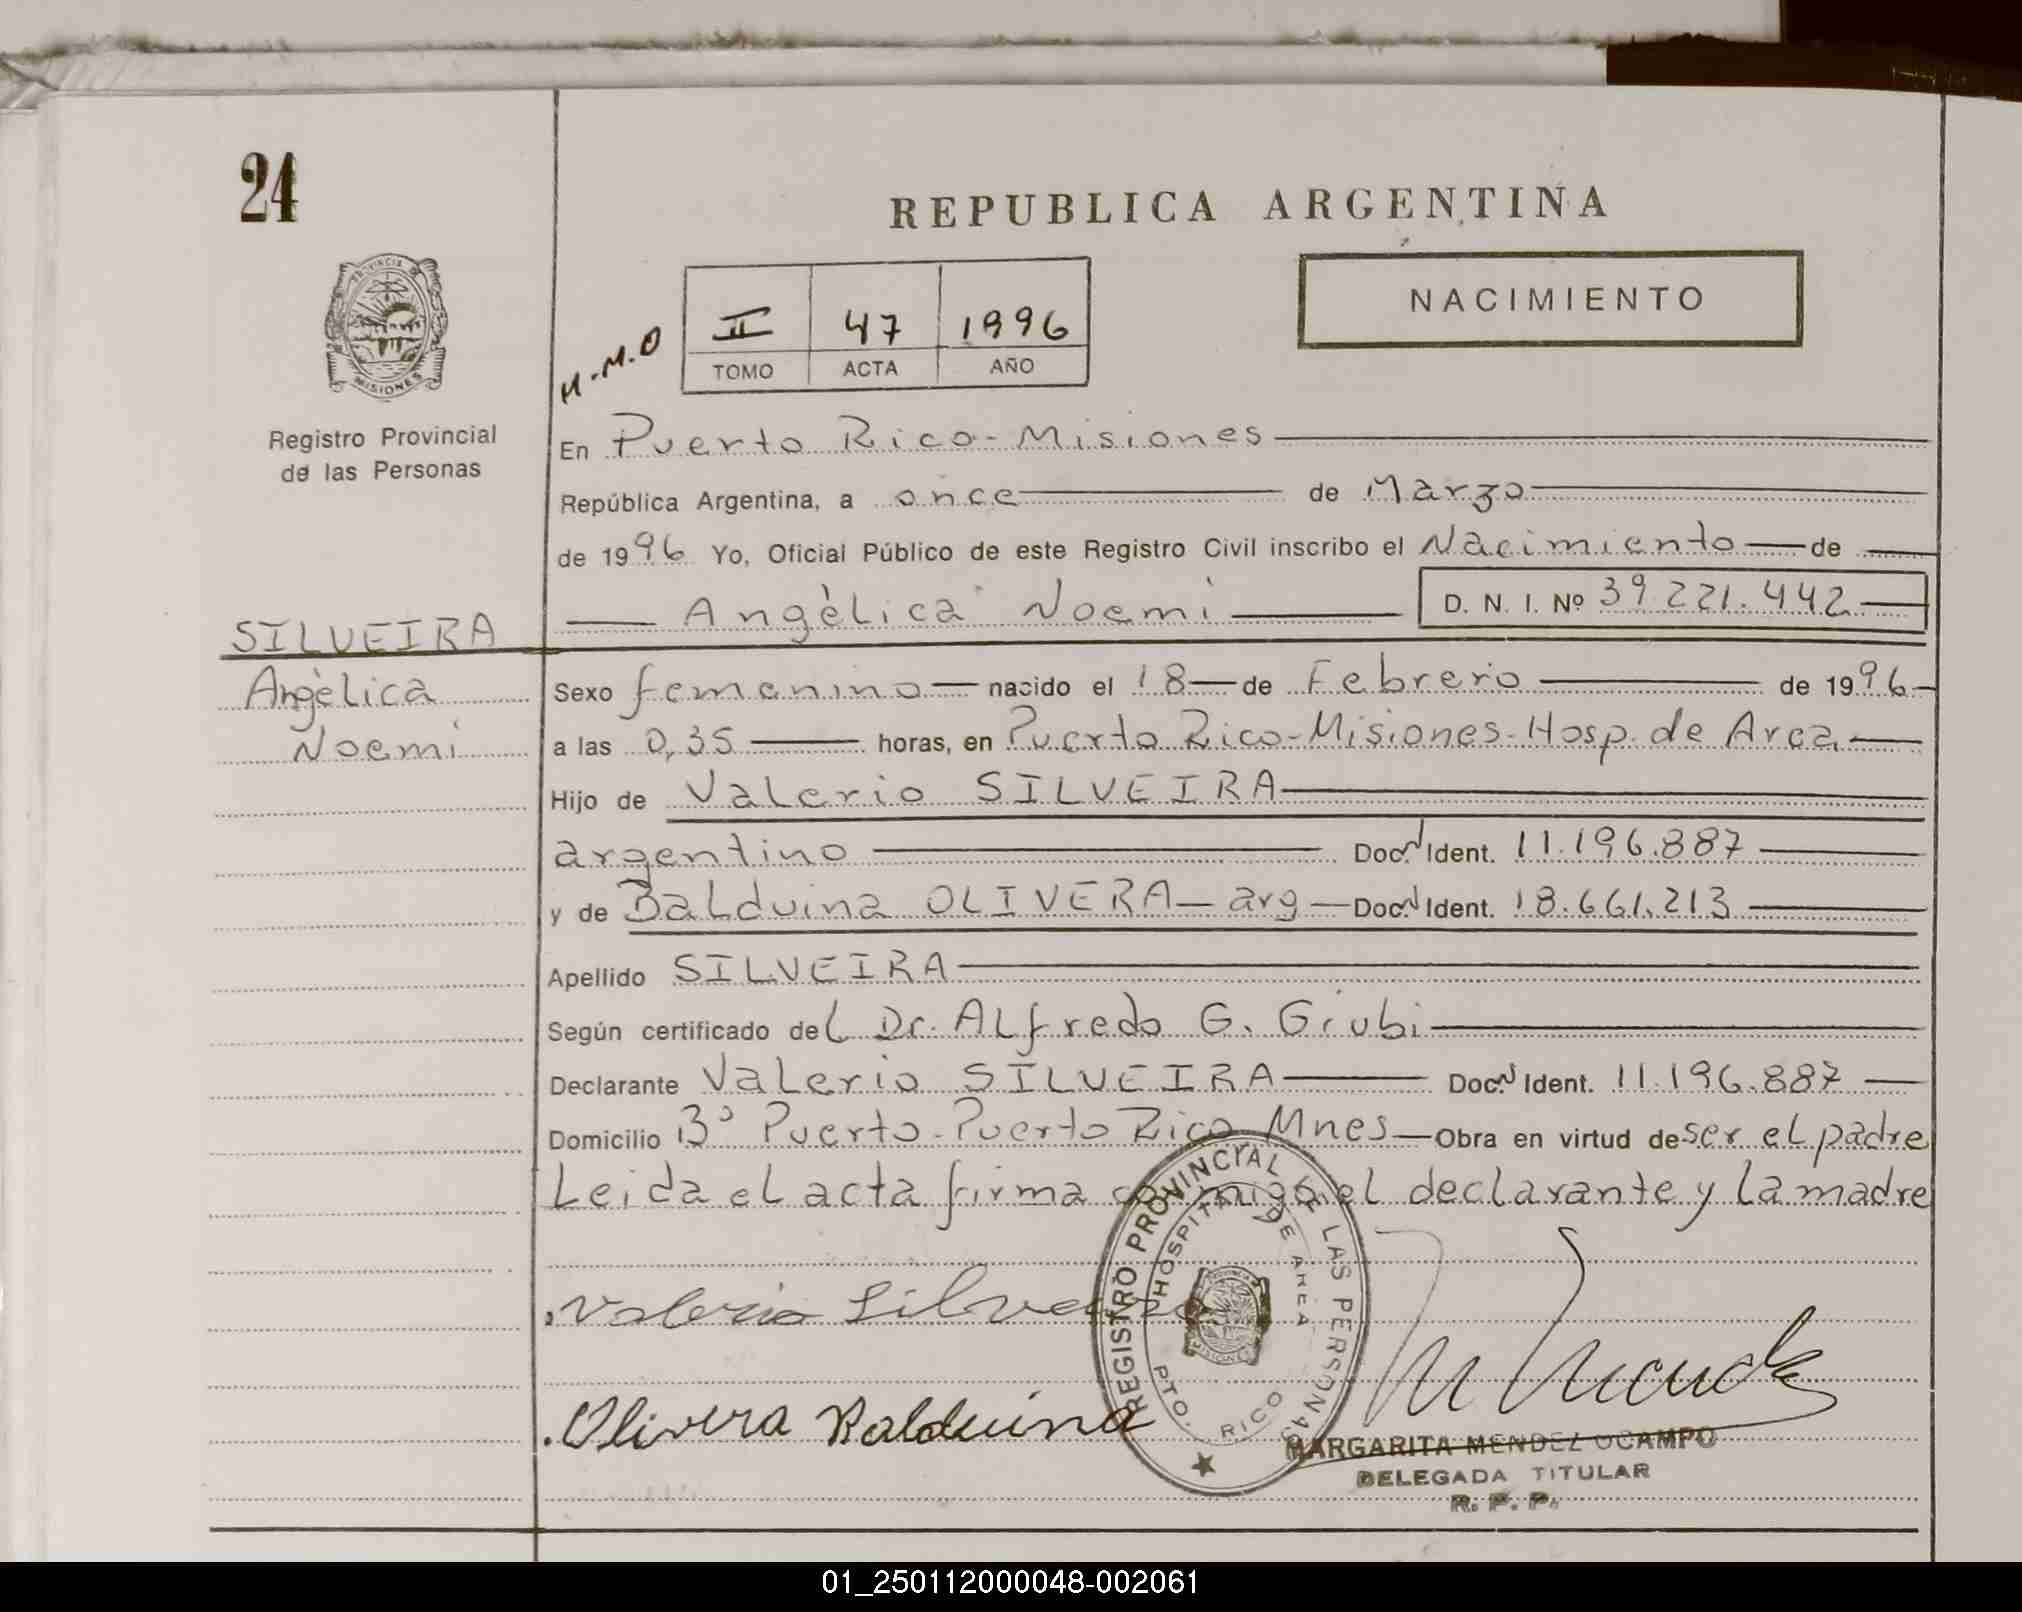 24
REPUBLICA ARGENTINA
NACIMIENTO
H.M.O
II 47 1996
TOMO ACTA AÑO
PROVINCIA DE
MISIONES
Registro Provincial
de las Personas
En Puerto Rico - Misiones
República Argentina, a once de Marzo
de 1996 Yo, Oficial Público de este Registro Civil inscribo el Nacimiento de
Angèlica Noemi D. N. I. Nº 39.221.442
SILVEIRA
Angèlica
Noemi
Sexo femenino nacido el 18 de Febrero de 1996
a las 0,35 horas, en Puerto Rico-Misiones-Hosp. de Area
Hijo de Valerio SILVEIRA
argentino Doc. Ident. 11.196.887
y de Balduina OLIVERA - arg Doc. Ident. 18.661.213
Apellido SILVEIRA
Según certificado del Dr. Alfredo G. Giubi
Declarante Valerio SILVEIRA Doc. Ident. 11.196.887
Domicilio Bº Puerto-Puerto Rico Mnes Obra en virtud de ser el padre
Leida el acta firma conmigo el declarante y la madre
Valerio Silveira
Olivera Balduina
REGISTRO PROVINCIAL DE LAS PERSONAS
HOSPITAL DE AREA
PTO. RICO
MISIONES
MARGARITA MENDEZ OCAMPO
DELEGADA TITULAR
R. P. P.
01_250112000048-002061